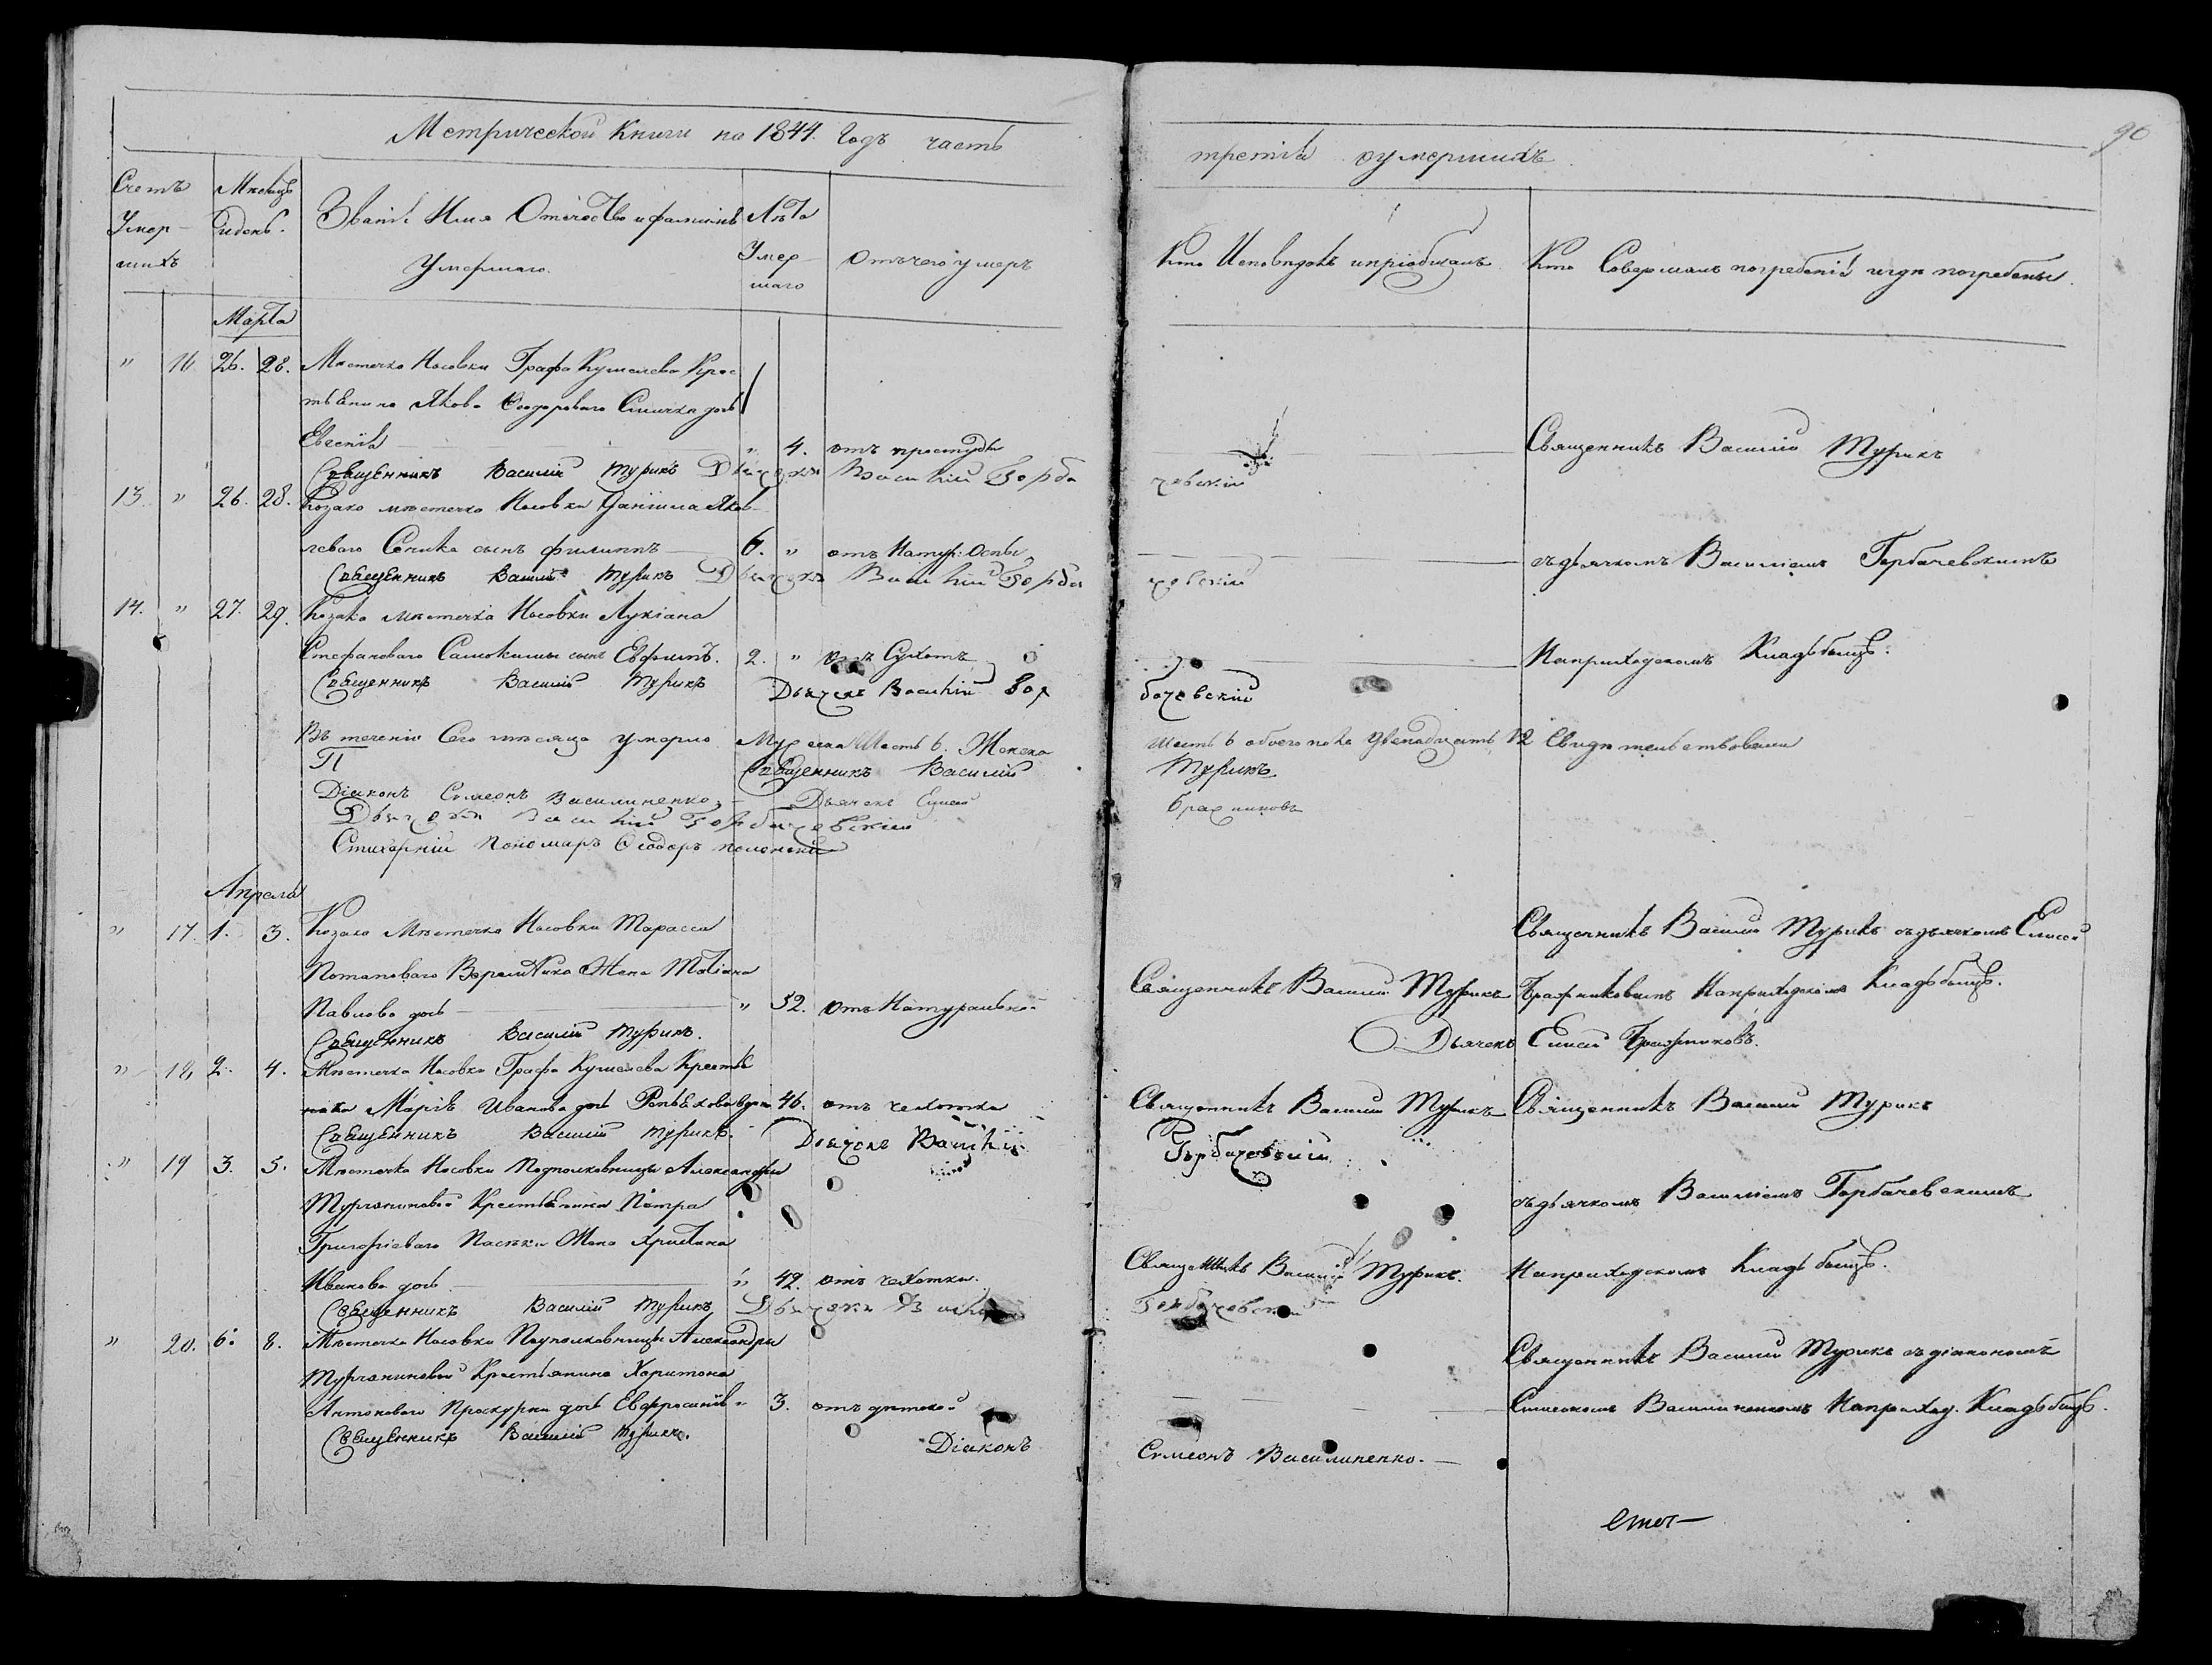 Метрической Книги на 1844. Годъ часть
третія о умершихъ
90
Счетъ Умер-шихъ
Мѣсяцъ и день.
Званіе Имя Отечество и фамилія Умершаго.
Лѣта Умер-шаго
Отъ чего умеръ
Кто Исповѣдовалъ и пріобщалъ
Кто Совершалъ погребеніе и гдѣ погребены.
Марта
" 16 26. 28. Мѣстечка Носовки Графа Кушелева Крес-
тьянина Якова Ѳеодорова дочь
Евгенія " 4. отъ простуды
Священникъ Василій Турикъ
Священникъ Василій Турикъ Дьячокъ Василій Горба
чевскій
13. " 26. 28. Козака мѣстечка Носовки Даніила Яков-
лева сынъ Филиппъ 6. " отъ Натур: Оспы
съ дьячкомъ Василіемъ Горбачевскимъ
Священникъ Василій Турикъ Дьячокъ Василій Горба
чевскій
14. " 27. 29. Козака мѣстечка Носовки Лукіана
Стефанова сынъ Евфимъ. 2. " отъ Сухотъ
На приходскомъ Кладбищѣ.
Священникъ Василій Турикъ Дьячокъ Василій Гор
бачевскій
Въ теченіи Сего мѣсяца умерло Мужеска Шесть 6. Женска
шесть 6 обоего пола двенадцать 12 Свидѣтельствовали
Священникъ Василій
Турикъ
Діаконъ Симеонъ Василиненко, Дьячокъ Елисей
Бражниковъ
Дьячокъ Василій Горбачевскій
Стихарній Пономарь Ѳеодоръ
Апреля
" 17. 1. 3. Козака Мѣстечка Носовки Тарасія
Священникъ Василій Турикъ съ дьячкомъ Елисей
Потапова Жена Татіана
Павлова дочь " 52. отъ Натуральной
Священникъ Василій Турикъ
Бражниковымъ На приходскомъ Кладбищѣ.
Священникъ Василій Турикъ.
Дьячокъ Елисей Бражниковъ.
" 18, 2. 4. Мѣстечка Носовки Графа Кушелева Крестья
нка Марія Иванова дочь вдова 46. отъ чахотки
Священникъ Василій Турикъ
Священникъ Василій Турикъ
Священникъ Василій Турикъ. Дьячокъ Василій
Горбачевскій
" 19 3. 5. Мѣстечка Носовки Подполковницы Александры
Турчаниновой Крестьянина Петра
съ дьячкомъ Василіемъ Горбачевскимъ
Григоріева Пасѣки Жена Христина
Иванова дочь " 42. отъ чахотки.
Священникъ Василій Турикъ.
На приходскомъ Кладбищѣ.
Священникъ Василій Турикъ Дьячокъ
Горбачевскій
" 20. 6. 8. Мѣстечка Носовки Подполковницы Александры
Турчаниновой Крестьянина Харитона
Священникъ Василій Турикъ съ діакономъ
Антонова Проскурни дочь Евфросинія " 3. отъ дѣтской
Симеономъ Василиненкомъ На приход. Кладбищѣ.
Священникъ Василій Турикъ. Діаконъ
Симеонъ Василиненко.